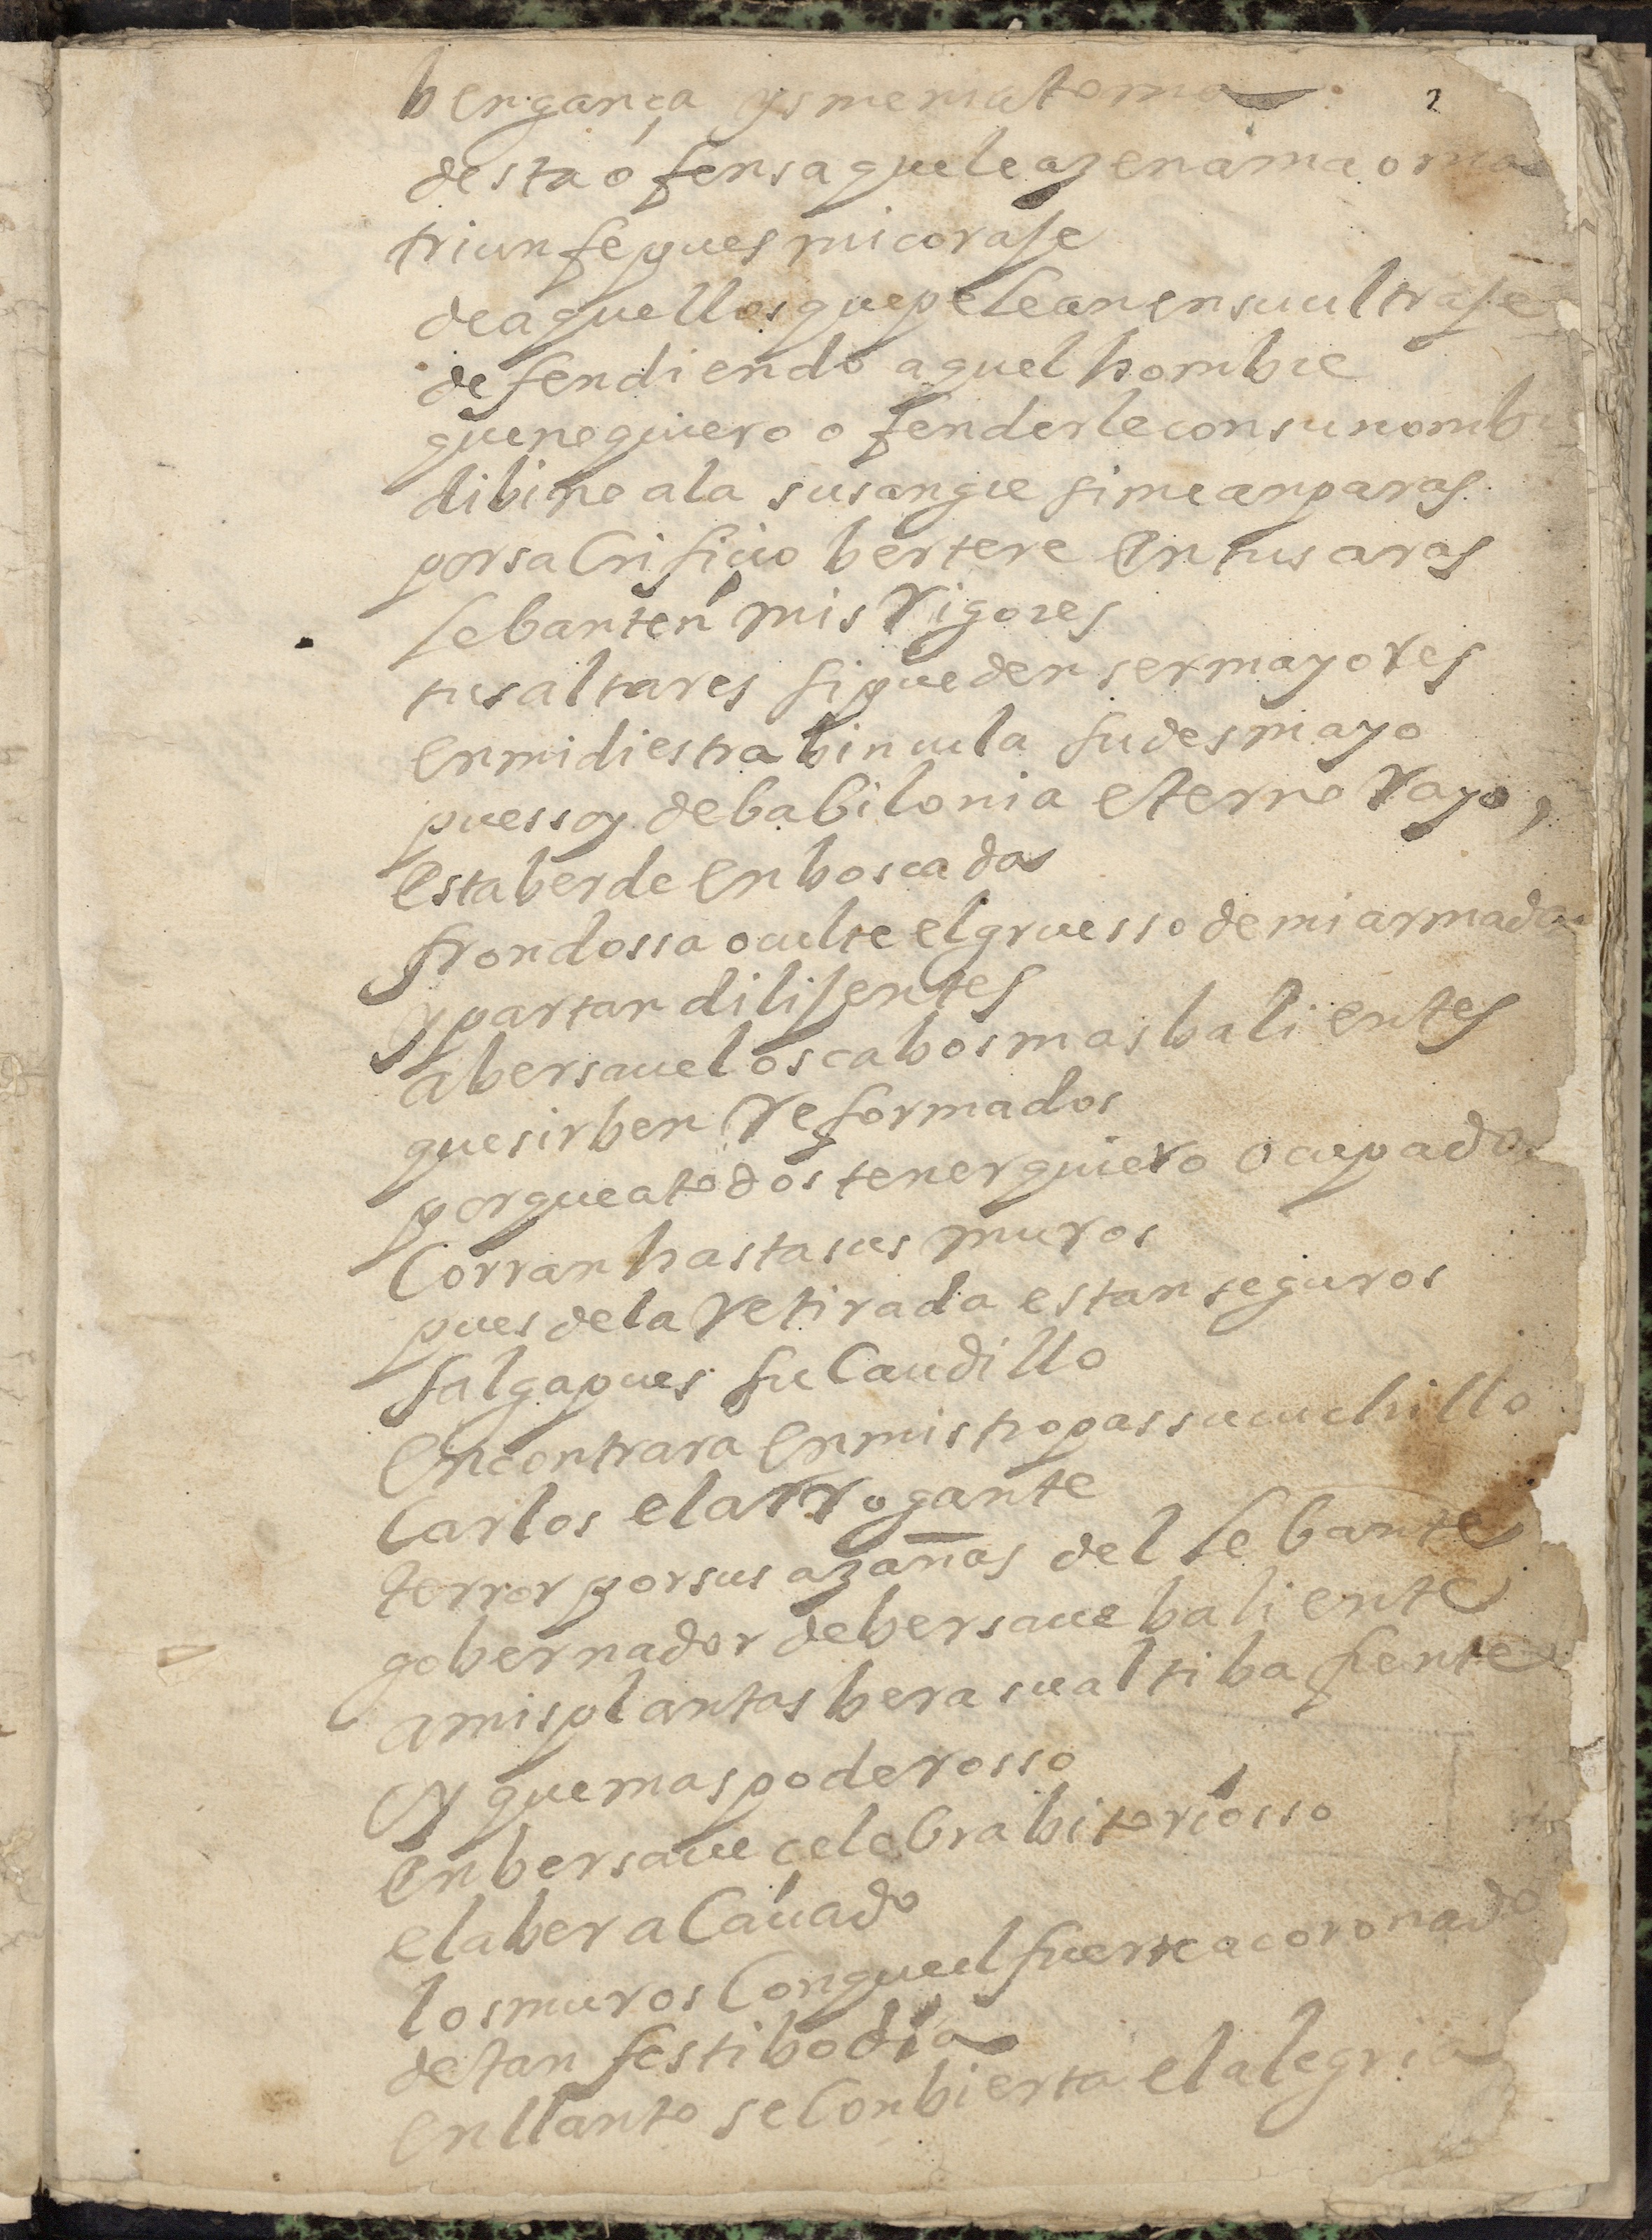 2
bengança
desta ofensa que le azen a ma oma
triunfe pues mi coraje
de aquellos que pelean en su ultraje
defendiendo aquel hombre
que no quiero ofenderle con su nombre
dibino ala su sangre si me anparas
por sacrificio bertere en tus aras
lebanten mis rigores
tus altares si pueden ser mayores
en mi diestra bincula su desmayo
pues soy de babilonia eterno rayo,
esta berde enboscada
frondossa oculte el gruesso de mi armada
y partan dilijentes
a bersaue los cabos mas balientes
que sirben reformados
porque a todos tener quiero ocupados
Corran hasta sus muros
pues de la retirada estan seguros
salga pues su Caudillo
encontrara en mis tropas su cuchillo
Carlos el arrogante
terror por sus azañas del lebante
gobernador de bersaue baliente
a mis plantas bera su altiba frente
y que mas poderosso
en bersaue çelebra bitoriosso
el aber aCauado
los muros Con que el fuerte a coronado
de tan festibo dia
en llanto se Conbierta el alegria